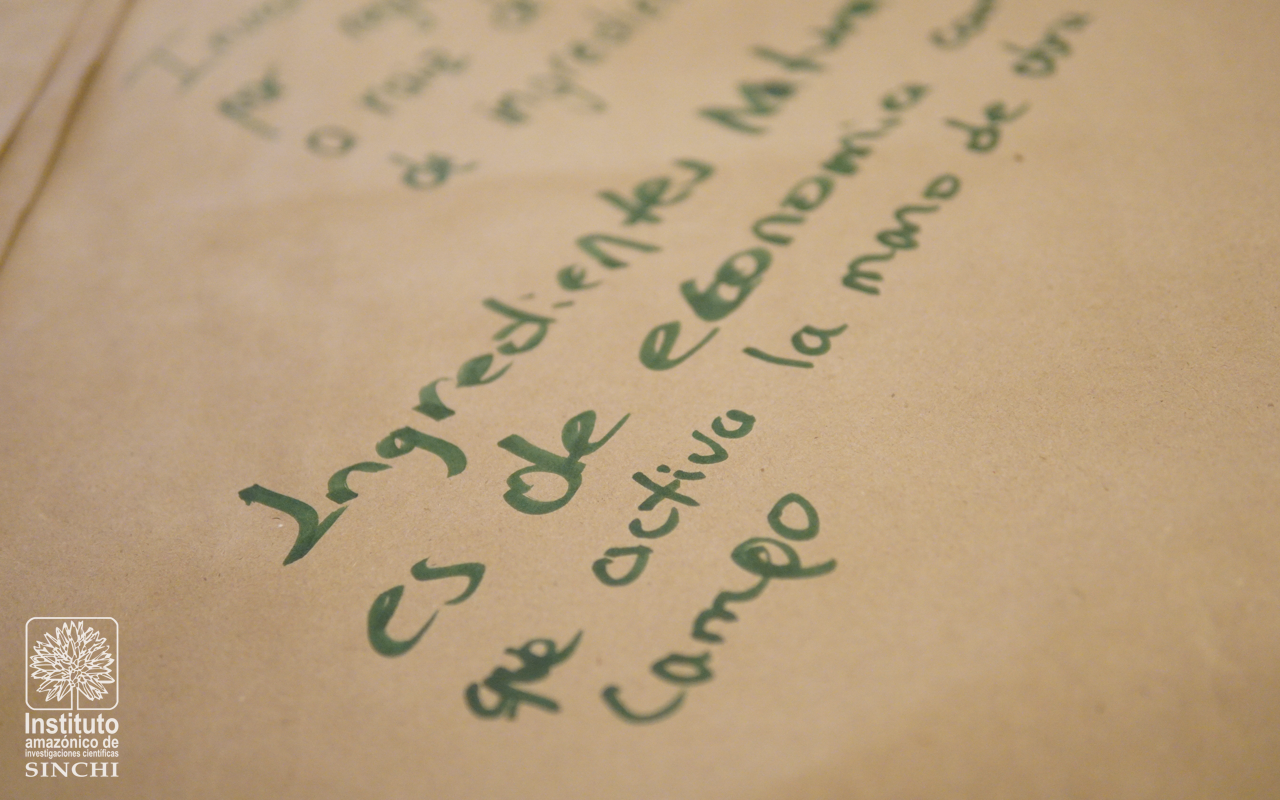 por
o raiz de
de ingredie
Ingredientes Natura
es de economica cam
que activa la mano de obra
campo
Instituto
amazónico de
investigaciones científicas
SINCHI